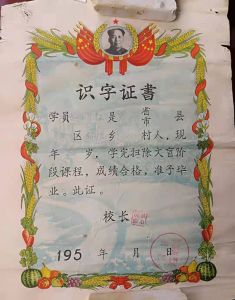 识字证書
学員 是 省市 县
区 乡 村人，现
年 岁，学完扫除文盲阶
段课程，成绩合格，准予毕
业。此证。
校长
195 年 月 日